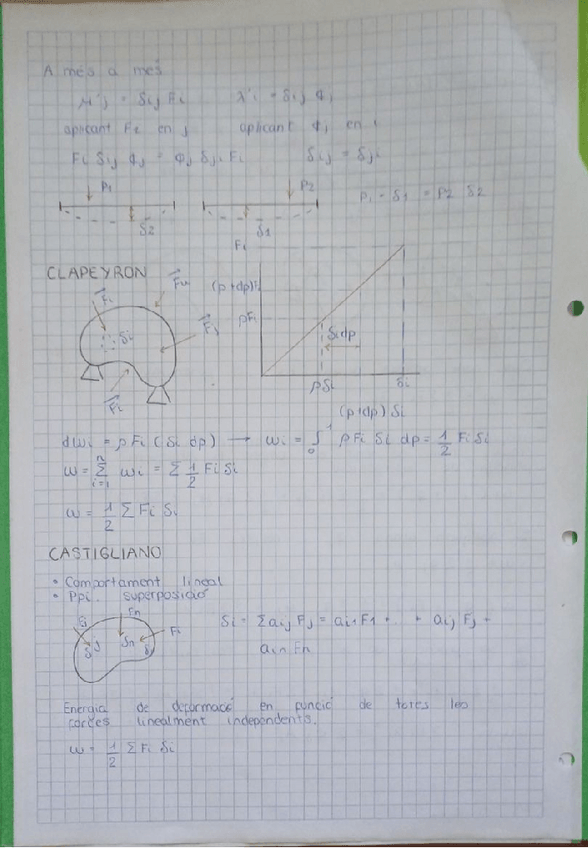 A més a més
μ'j = δij Fi λ'i = δij ϕj
aplicant Fi en j aplicant ϕj en i
Fi δij ϕj = ϕj δji Fi δij = δji
P1 P2
P1 - δ1 = P2 δ2
δ2 δ1
Fi
CLAPEYRON
Fi (p+dp)i
pFi
Fj
δi
δi dp
Fi
pδi δi
(p+dp) δi
dwi = p Fi (δi dp) → wi = ∫₀¹ p Fi δi dp = 1/2 Fi δi
w = Σ i=1 n wi = Σ 1/2 Fi δi
w = 1/2 Σ Fi δi
CASTIGLIANO
• Comportament lineal
• Ppi. superposició
Fn
Fj Fi
δj δn
δi = Σ aij Fj = ai1 F1 + .. + aij Fj +
ain Fn
Energia de deformació en funció de totes les
forces linealment independents.
w = 1/2 Σ Fi δi